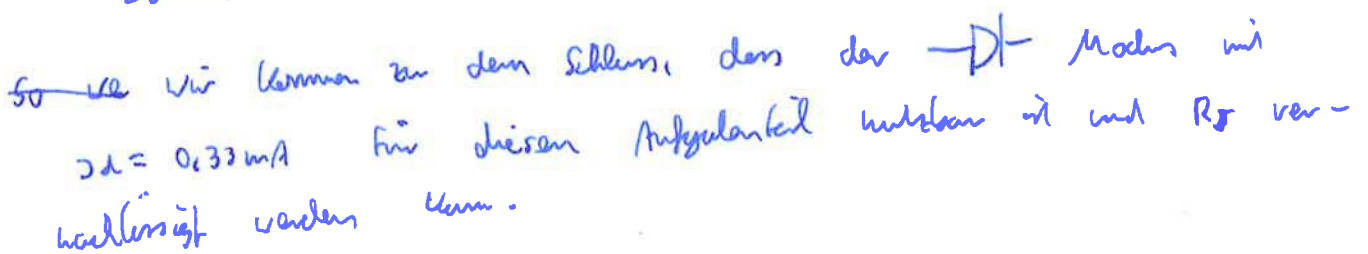 So we wir kommen zu dem Schluss, dass der Modus mit
Id = 0,33 mA für diesen Aufgabenteil nutzbar ist und RI ver-
nachlässigt werden kann.